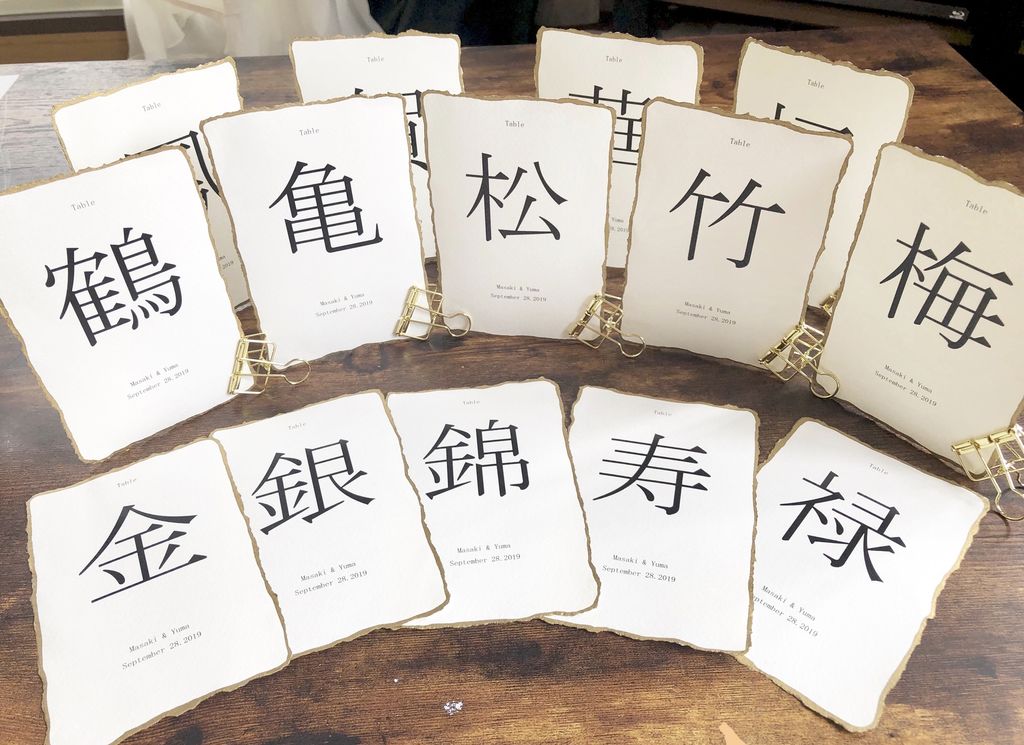 Table
Table
Table
Table
華
Table
鶴
Masaki & Yuma
September 28.2019
Table
亀
Masaki & Yuma
September 28.2019
Table
松
Masaki & Yuma
September 28.2019
Table
竹
Masaki & Yuma
September 28.2019
Table
梅
Masaki & Yuma
September 28.2019
Table
金
Masaki & Yuma
September 28.2019
Table
銀
Masaki & Yuma
September 28.2019
Table
錦
Masaki & Yuma
September 28.2019
Table
寿
Masaki & Yuma
September 28.2019
Table
禄
Masaki & Yuma
September 28.2019